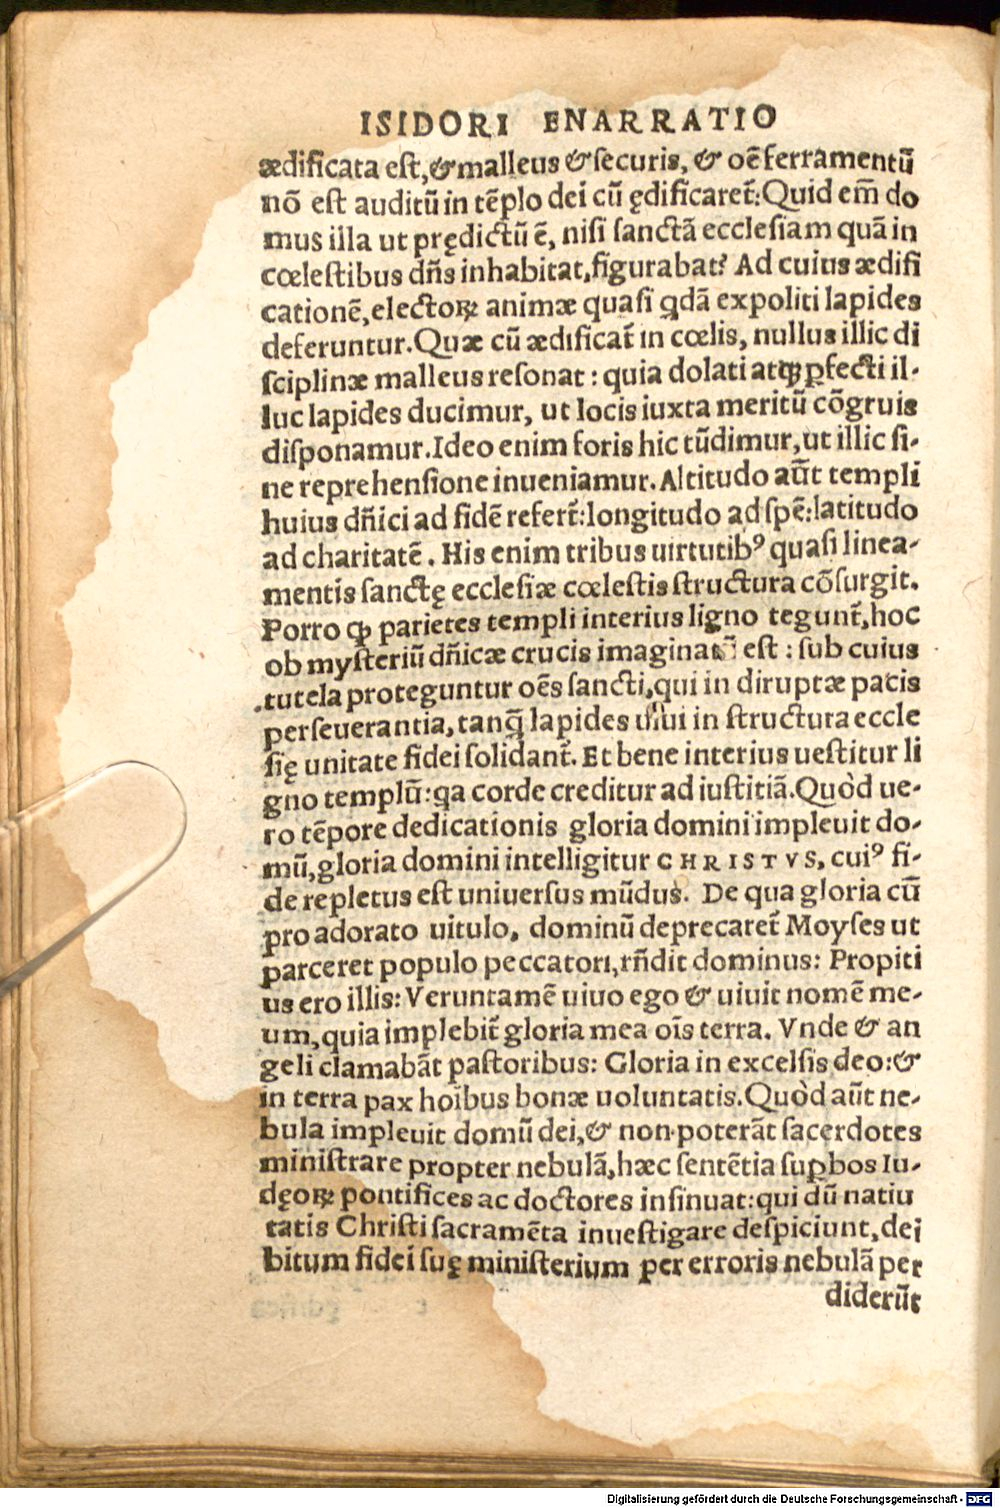 ISIDORI ENARRATIO
ædificata est, & malleus & securis, & oẽ ferramentũ
nõ est auditũ in tẽplo dei cũ ędificaret̃: Quid em̃ do
mus illa ut prędictũ ẽ, nisi sanctã ecclesiam quã in
cœlestibus dñs inhabitat, figurabat? Ad cuius ædifi
cationẽ, electoꝝ animæ quasi qdã expoliti lapides
deferuntur. Quæ cũ ædificat̃ in cœlis, nullus illic di
sciplinæ malleus resonat: quia dolati atqꝫ ꝑfecti il-
luc lapides ducimur, ut locis iuxta meritũ cõgruis
disponamur. Ideo enim foris hic tũdimur, ut illic si-
ne reprehensione inueniamur. Altitudo aũt templi
huius dñici ad fidẽ refert̃: longitudo ad spẽ: latitudo
ad charitatẽ. His enim tribus uirtutibꝰ quasi linea-
mentis sanctę ecclesiæ cœlestis structura cõsurgit.
Porro ꝙ parietes templi interius ligno tegunt̃, hoc
ob mysteriũ dñicæ crucis imaginatũ est: sub cuius
tutela proteguntur oẽs sancti, qui in diruptæ pacis
perseuerantia, tanq̃ lapides uiui in structura eccle
się unitate fidei solidant̃. Et bene interius uestitur li
gno templũ: qa corde creditur ad iustitiã. Quòd ue-
ro tẽpore dedicationis gloria domini impleuit do-
mũ, gloria domini intelligitur CHRISTVS, cuiꝰ fi-
de repletus est uniuersus mũdus. De qua gloria cũ
pro adorato uitulo, dominũ deprecaret̃ Moyses ut
parceret populo peccatori, rñdit dominus: Propiti
us ero illis: Veruntamẽ uiuo ego & uiuit nomẽ me-
um, quia implebit̃ gloria mea oĩs terra. Vnde & an
geli clamabãt pastoribus: Gloria in excelsis deo: &
in terra pax hoĩbus bonæ uoluntatis. Quòd aũt ne-
bula impleuit domũ dei, & non poterãt sacerdotes
ministrare propter nebulã, hæc sentẽtia suꝑbos Iu-
dęoꝝ pontifices ac doctores insinuat: qui dũ natiu
tatis Christi sacramẽta inuestigare despiciunt, dei
bitum fidei suę ministerium per erroris nebulã per
diderũt
Digitalisierung gefördert durch die Deutsche Forschungsgemeinschaft - DFG